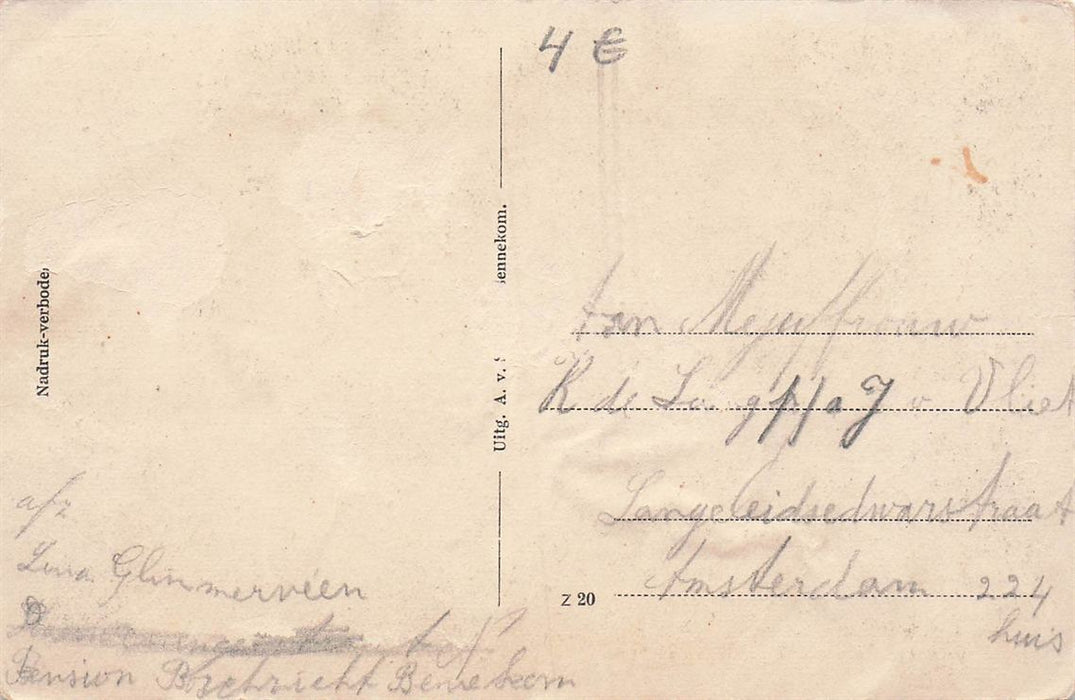 4 €
Nadruk-verbode
Uitg. A. v. ennekom.
Aan Mejuffrouw
K de Lang p/a J v Vliet
Langeleidsedwarsstraat
Amsterdam 224
huis
Z 20
afz
Lina Glimmerveen
Pension Bennekom